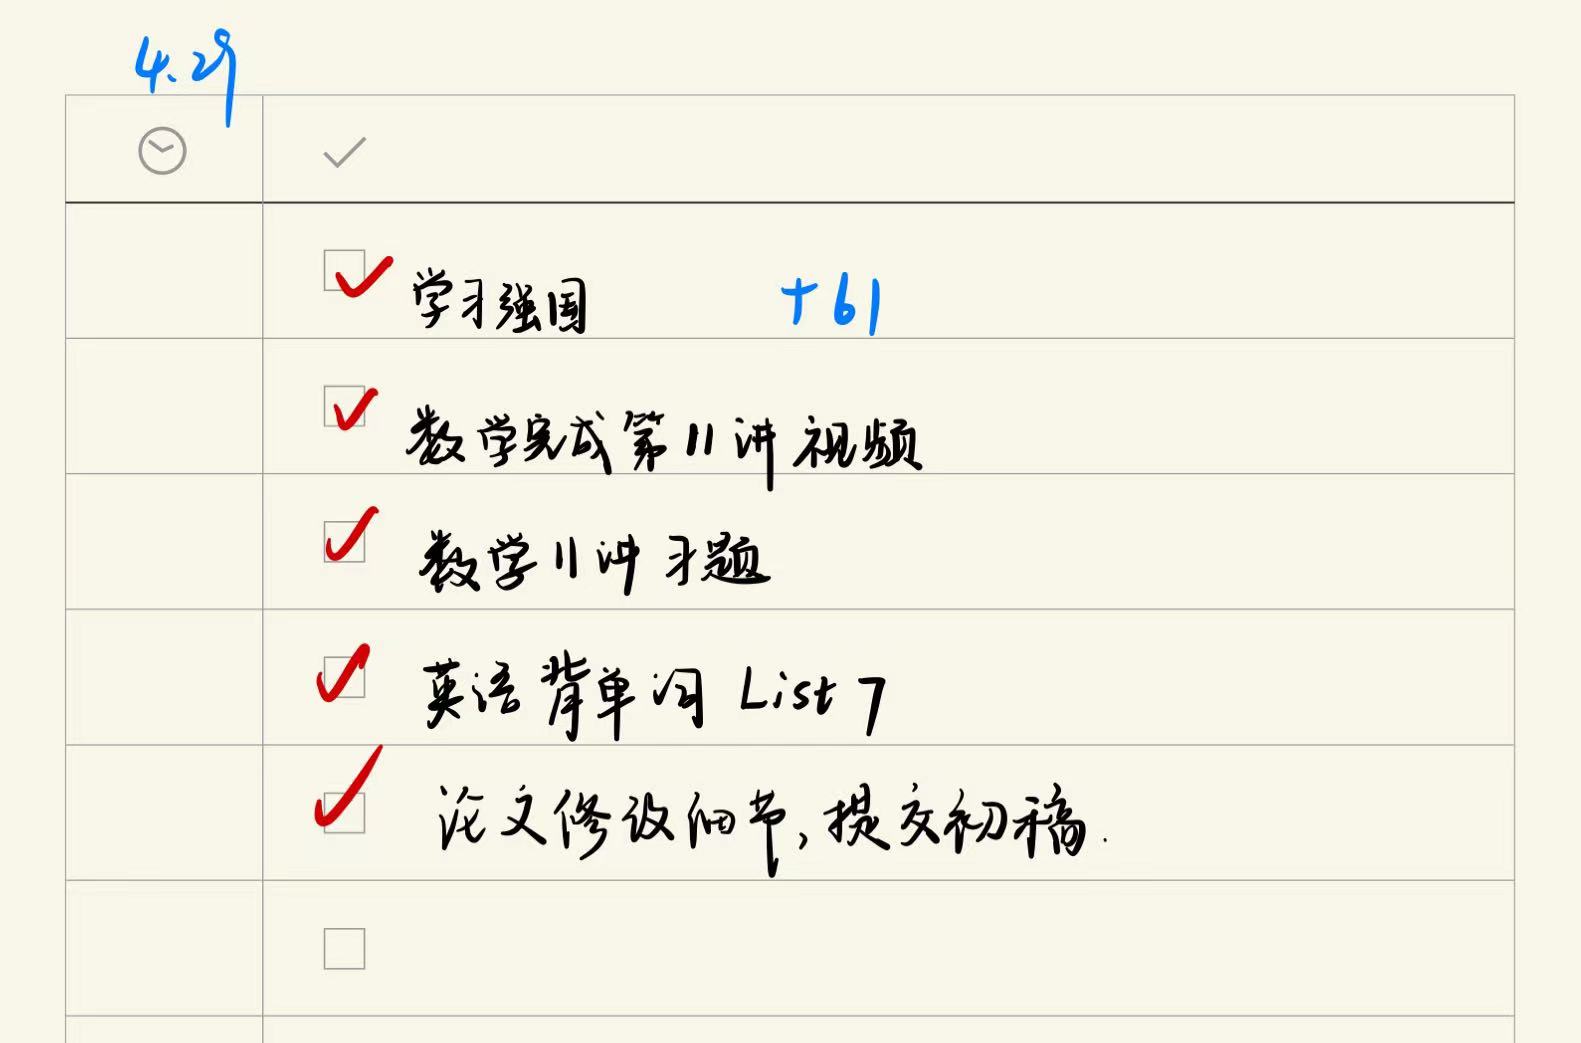 4.29
学习强国 +61
数学完成第11讲视频
数学11讲习题
英语背单词 List 7
论文修改细节,提交初稿.